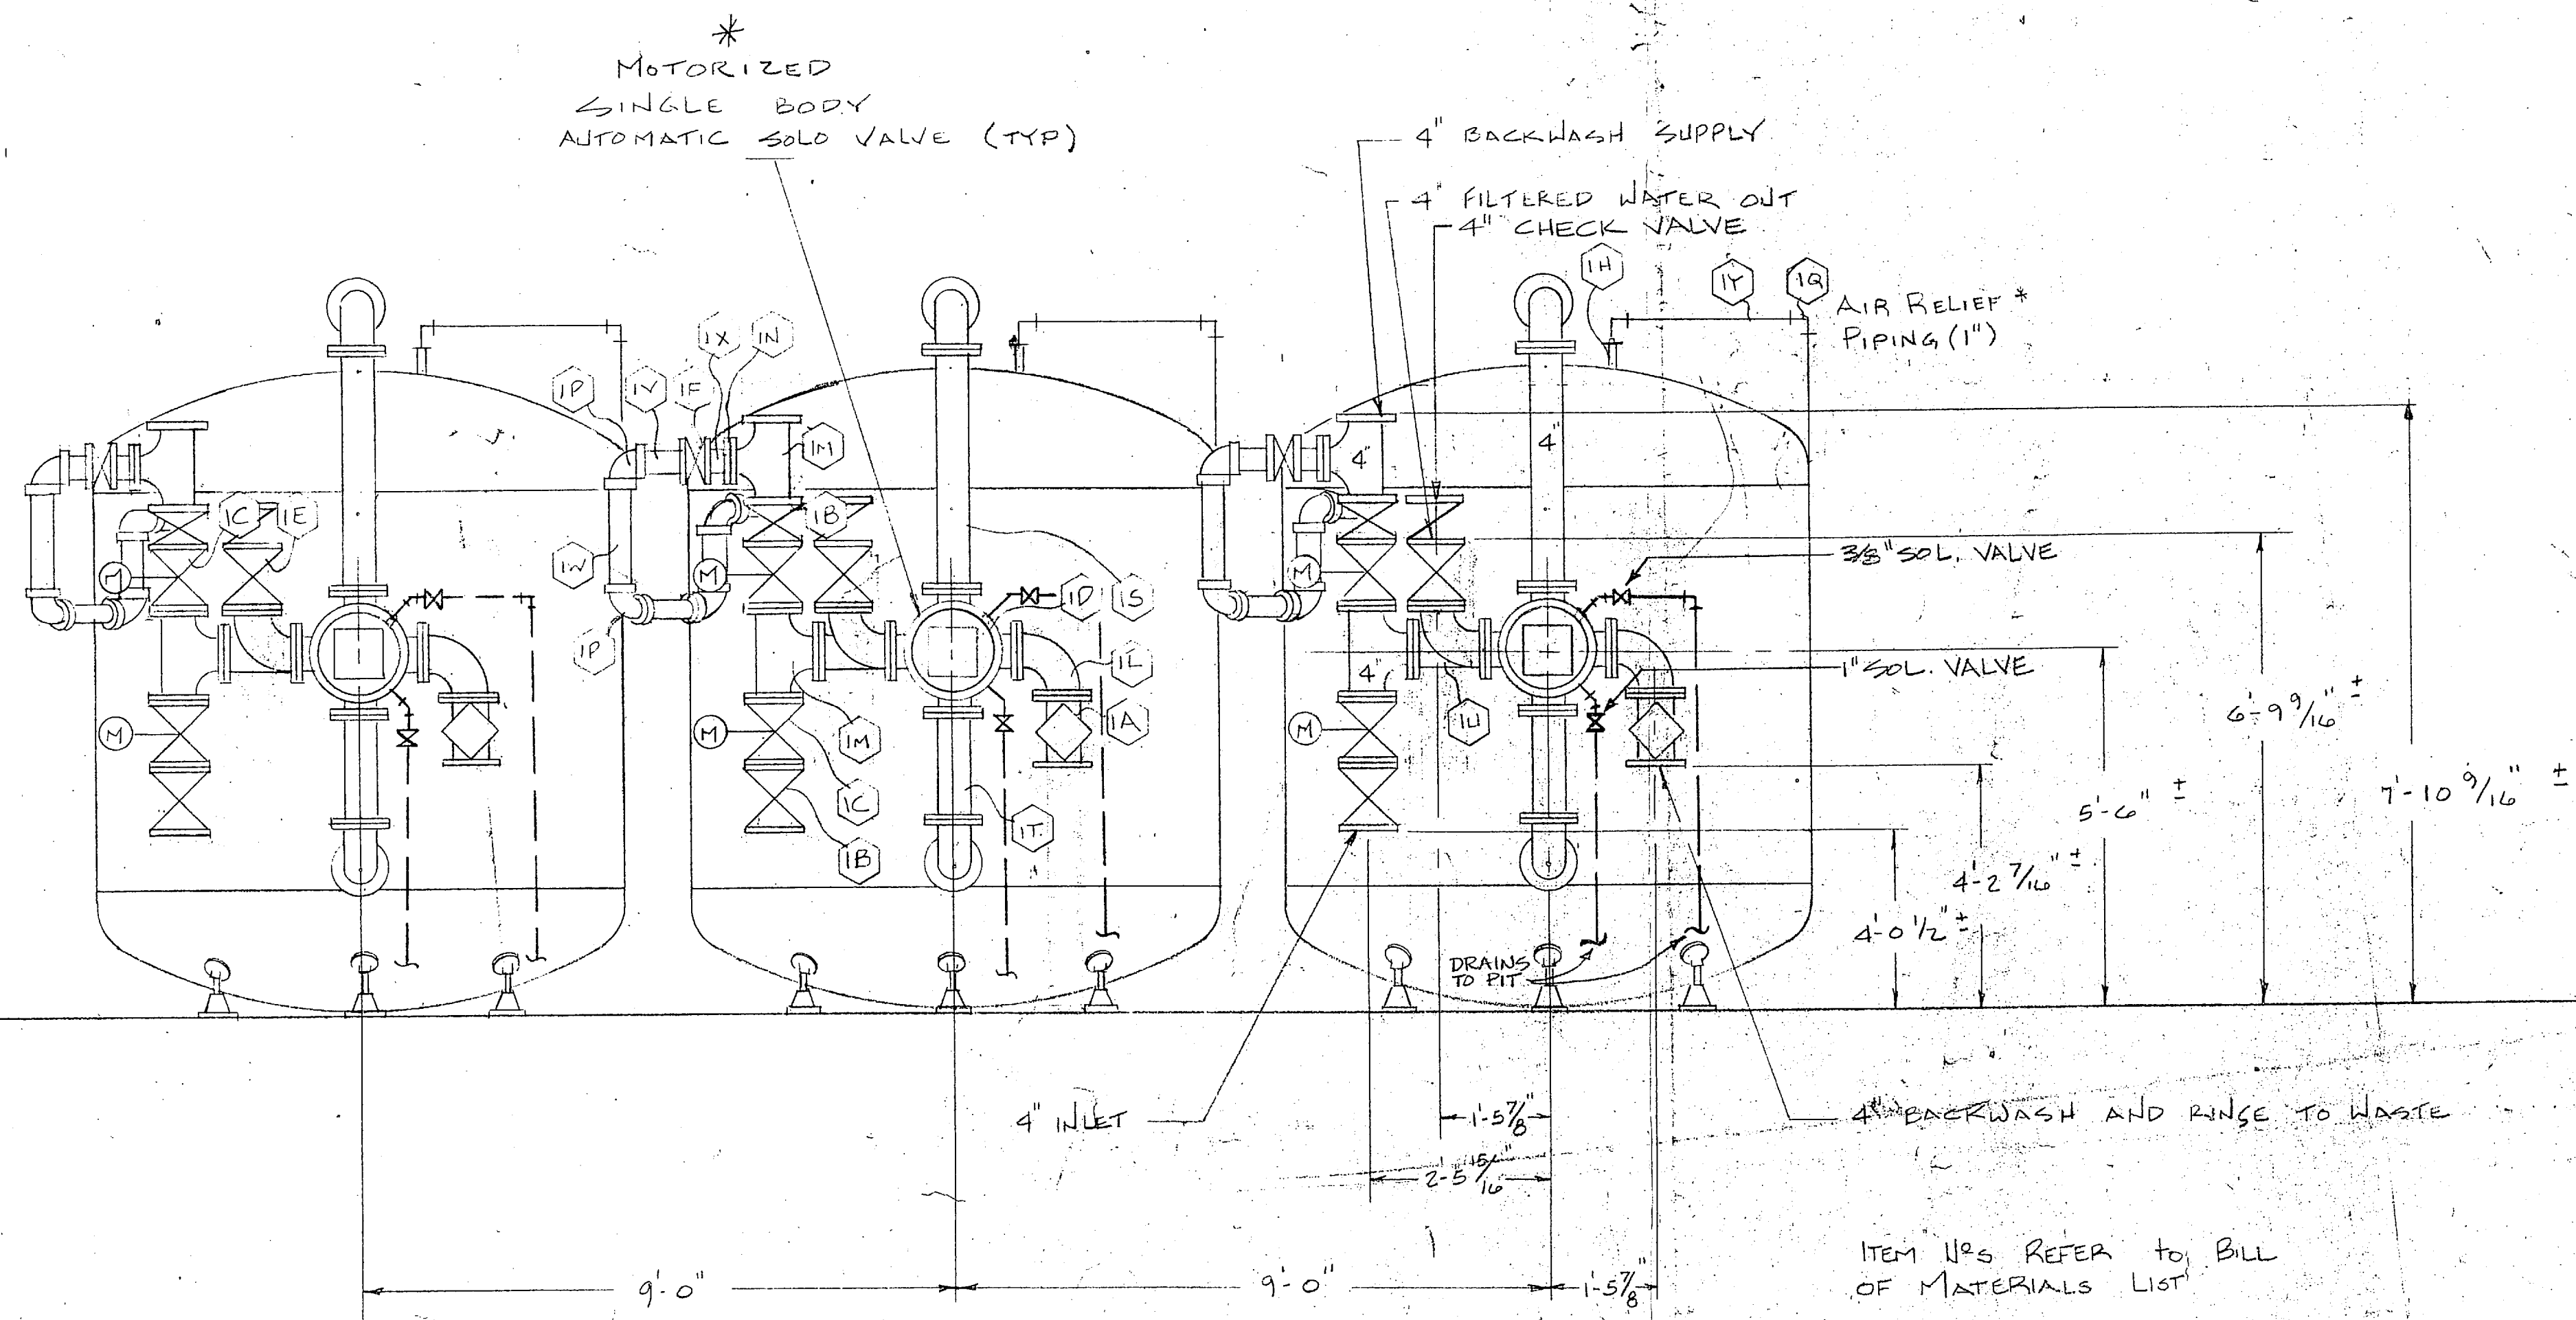 *
MOTORIZED
SINGLE BODY
AUTOMATIC SOLO VALVE (TYP)
4" BACKWASH SUPPLY
4" FILTERED WATER OUT
4" CHECK VALVE
1H
1Y
1Q
AIR RELIEF *
PIPING (1")
1X
1N
1P
1V
1F
1M
4"
4"
1C
1E
1B
M
1W
M
M
3/8" SOL. VALVE
1D
1S
1P
1L
4"
1" SOL. VALVE
1A
1U
M
M
1M
M
1C
1T
1B
6'-9 9/16" ±
7'-10 9/16" ±
5'-6" ±
4'-2 7/16" ±
4'-0 1/2" ±
DRAINS
TO PIT
4" INLET
1'-5 7/8"
4" BACKWASH AND RINSE TO WASTE
2'-5 15/16"
ITEM Nºs REFER to BILL
OF MATERIALS LIST
9'-0"
9'-0"
1'-5 7/8"